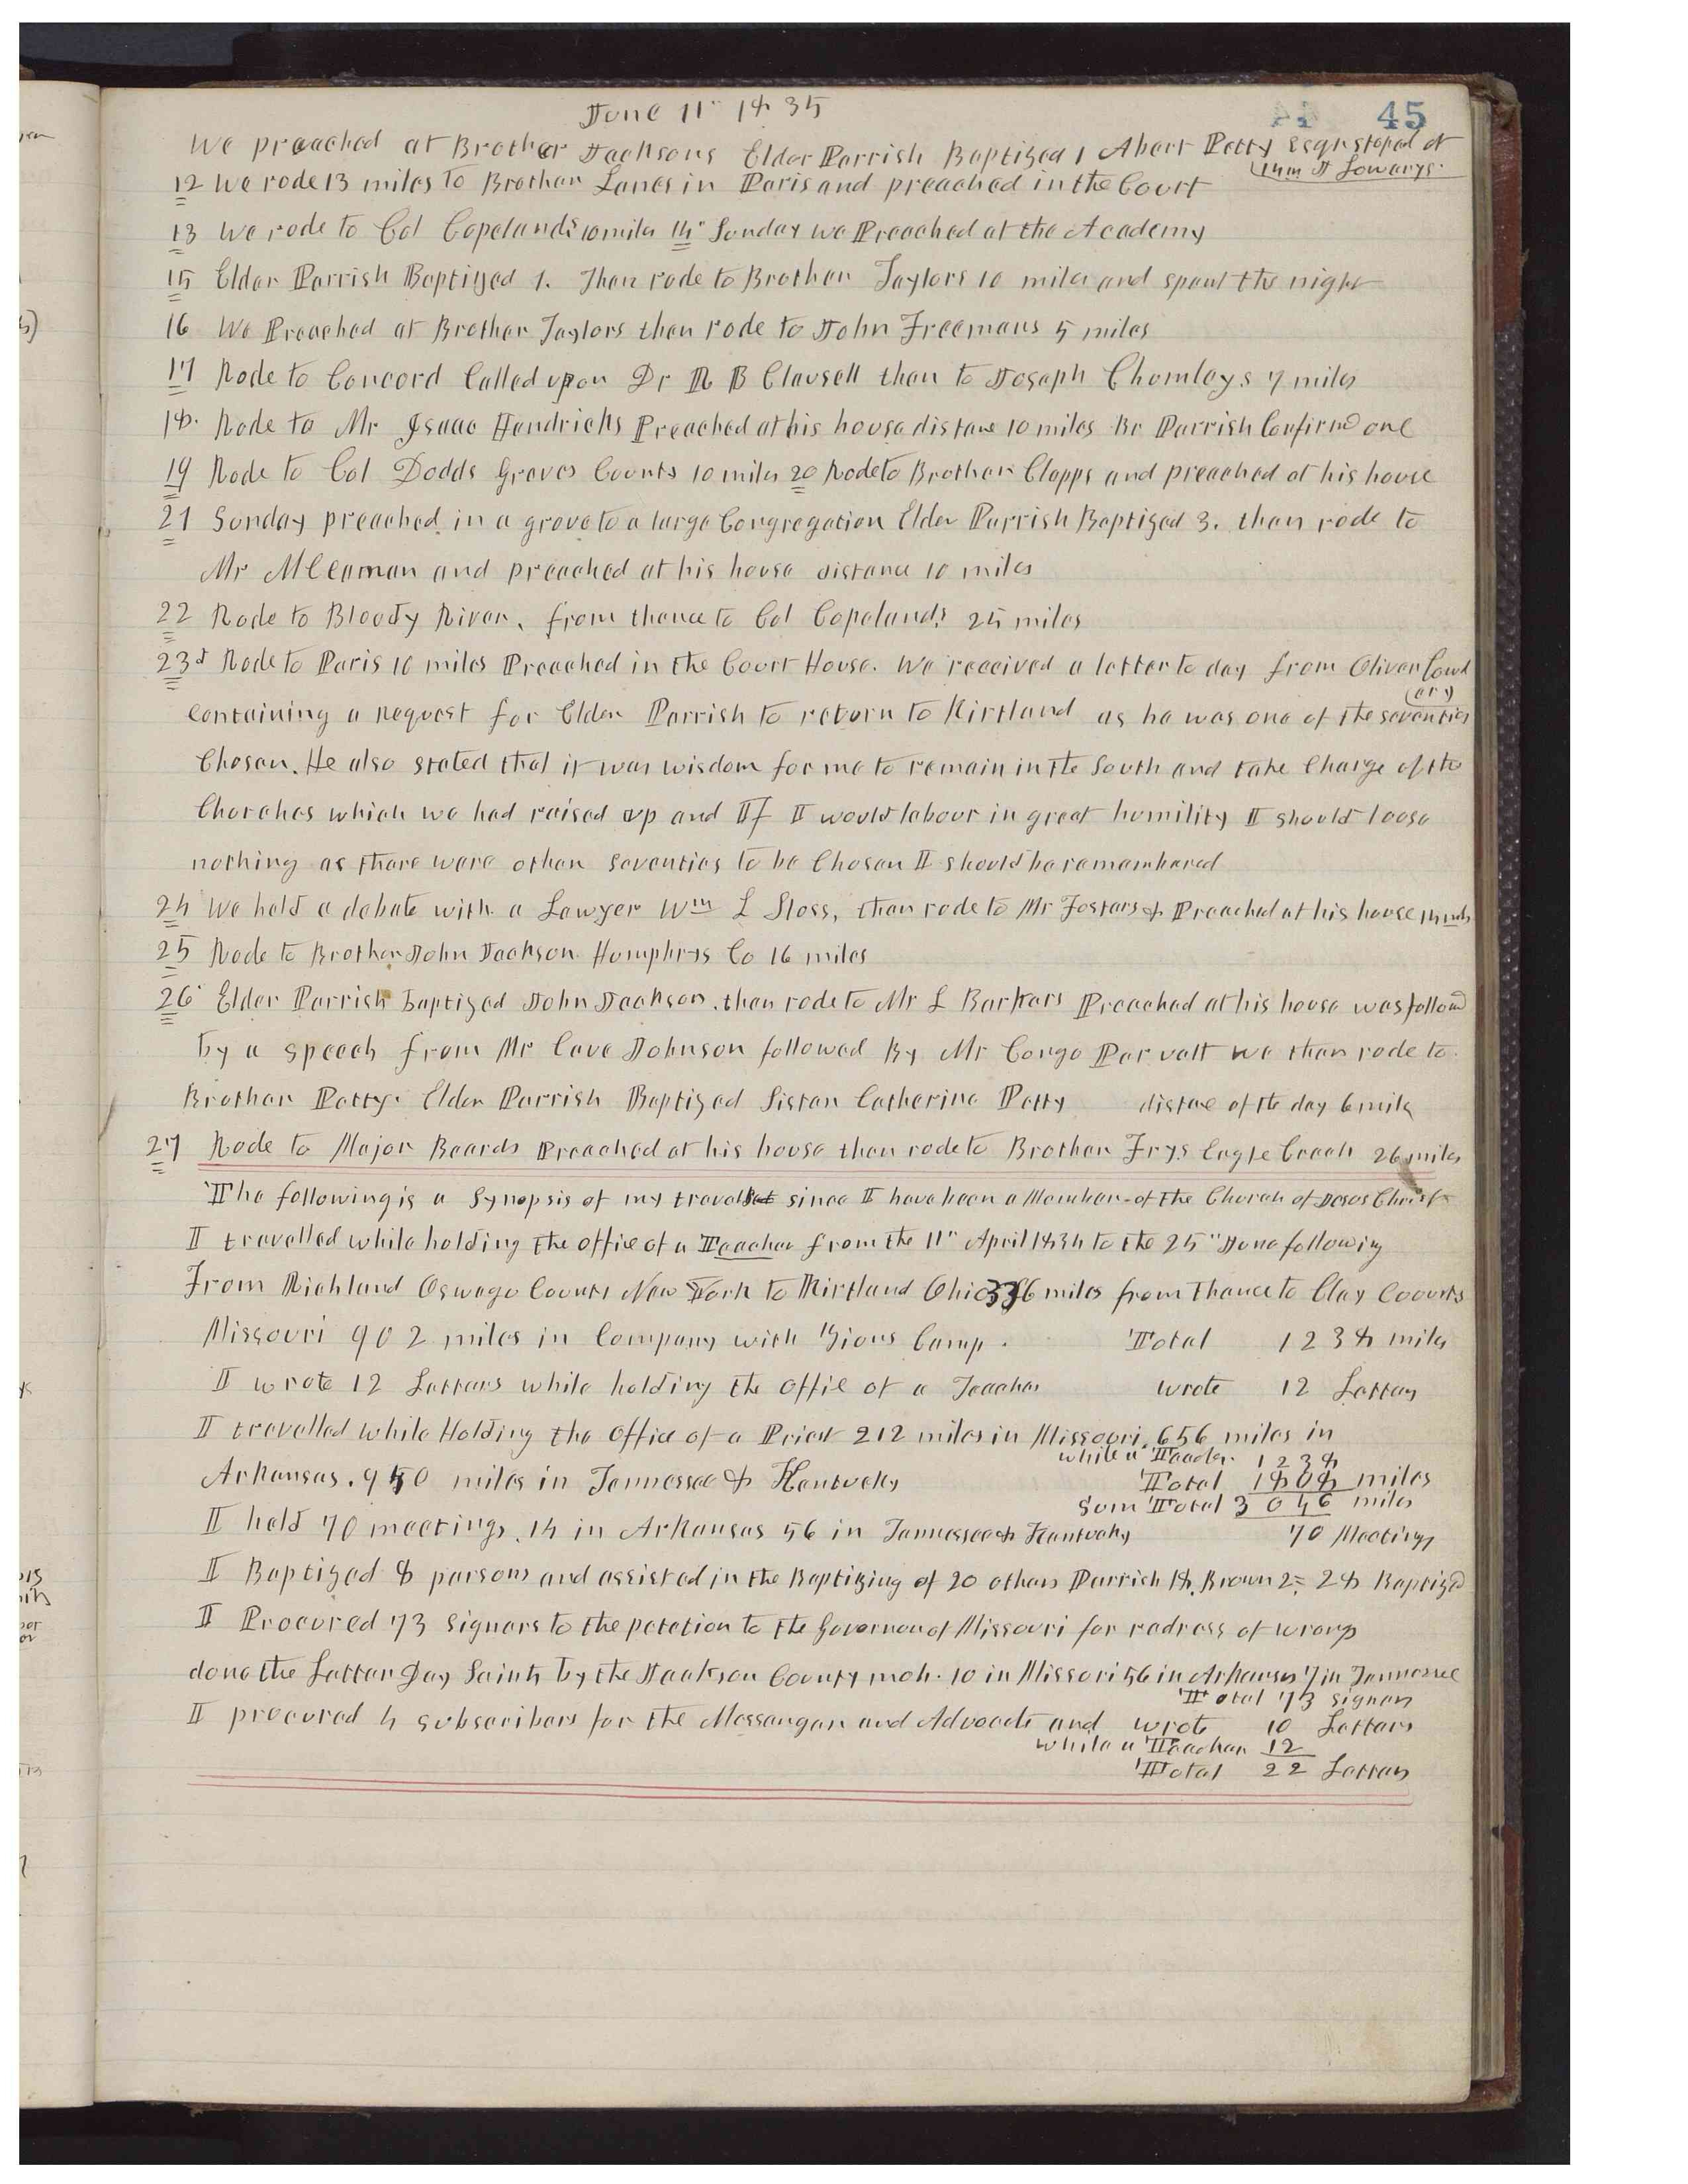 45
June 11" 1835
We preached at Brother Jacksons Elder Parrish Baptized 1 Abert Petty Esqr stoped at
Lowarys.
12 We rode 13 miles to Brother Lanes in Paris and preached in the Court
13 We rode to Col Copelands 10 miles 14" Sunday we Preached at the Academy
15 Elder Parrish Baptized 1. Then rode to Brother Taylors 10 miles and spent the night
16 We Preached at Brother Taylors then rode to John Freemans 5 miles
17 Rode to Concord Called upon Dr R B Clausell then to Joseph Chumleys 7 miles
18. Rode to Mr Isaac Hendricks Preached at his house distane 10 miles Br Parrish Confirmd one
19 Rode to Col Dodds Graves County 10 miles 20 Rode to Brother Clapps and preached at his house
21 Sunday preached in a grove to a large Congregation Elder Parrish Baptized 3. then rode to
Mr McCaman and preached at his house distance 10 miles
22 Rode to Bloody River, from thence to Col Copelands 25 miles
23d Rode to Paris 10 miles Preached in the Court House. We received a letter to day from Oliver Cowd
(ery)
containing a request for Elder Parrish to return to Kirtland as he was one of the seventies
Chosen. He also stated that it was wisdom for me to remain in the South and take Charge of the
Churches which we had raised up and If I would labour in great humility I should loose
nothing as there were other seventies to be Chosen I should be remembered
24 We held a debate with a Lawyer Wm L Sloss, then rode to Mr Fosters & Preached at his house 14 mls
25 Rode to Brother John Jackson Humphrys Co 16 miles
26 Elder Parrish baptized John Jackson. then rode to Mr L Barkers Preached at his house was followd
by a speech from Mr Cave Johnson followed By Mr Congo Parvatt we then rode to
Brother Petty. Elder Parrish Baptized Sister Catherine Petty distane of the day 6 miles
27 Rode to Major Beards Preached at his house then rode to Brother Frys Eagle Creek 26 miles
The following is a Synopsis of my travels since I have been a Member of the Church of Jesus Christ
I travelled while holding the office of a Teacher from the 11" April 1834 to the 25" June following
From Richland Oswego County New York to Kirtland Ohio 336 miles from Thence to Clay County
Missouri 902 miles in Company with Zions Camp. Total 1238 miles
I wrote 12 Letters while holding the offie of a Teacher wrote 12 Letters
I travelled while Holding the Office of a Priest 212 miles in Missouri. 656 miles in
while a Teacher. 1238
Arkansas. 940 miles in Tennessee & Kentucky Total 1808 miles
Sum Total 3046 miles
I held 70 meetings. 14 in Arkansas 56 in Tennessee & Kentucky 70 Meetings
I Baptized 8 persons and assisted in the Baptizing of 20 others Parrish 18. Brown 2= 28 Baptizd
I Procured 73 signers to the petetion to the Governor of Missouri for redress of wrongs
done the Latter Day Saints by the Jackson County mob. 10 in Missori 56 in Arkansas 7 in Tennessee
Total 73 signers
I procured 4 subscribers for the Messenger and Advocate and wrote 10 Letters
while a Teacher 12
Total 22 Letters